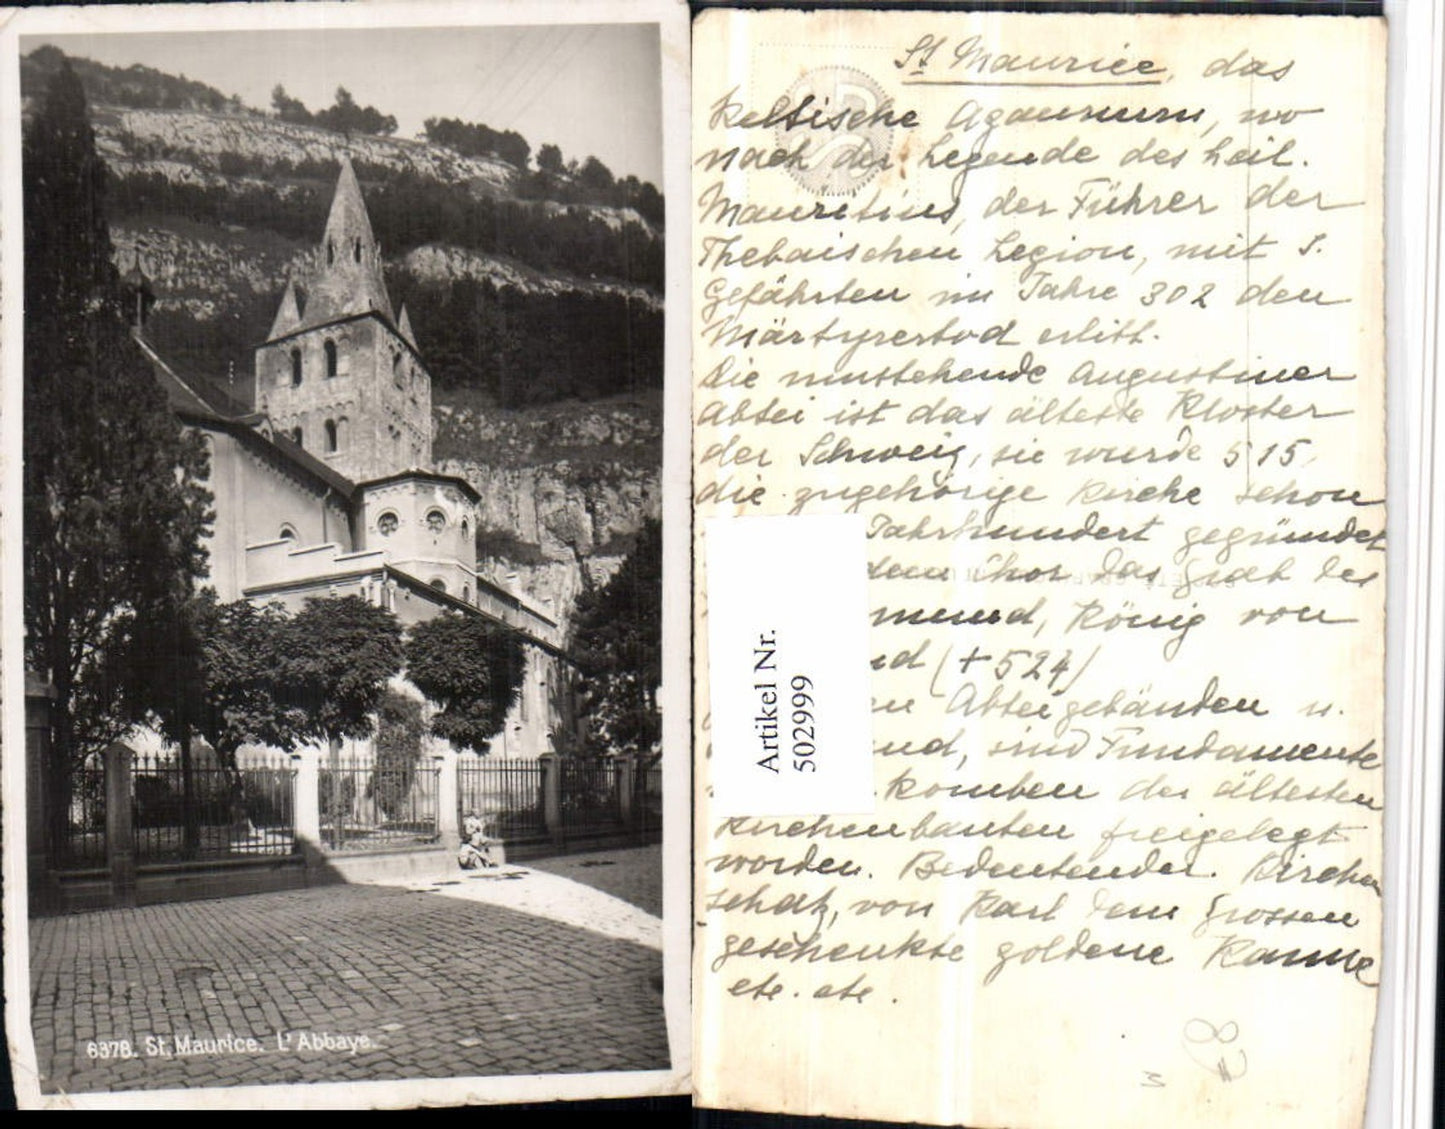 6378. St. Maurice. L'Abbaye.
St Maurice, das
keltische Agaunum, wo
nach der Legende des heil.
Mauritius, der Führer der
Thebaischen Legion, mit s.
Gefährten im Jahre 302 den
Märtyrertod erlitt.
Die umstehende Augustiner
abtei ist das älteste Kloster
der Schweiz, sie wurde 515,
die zugehörige Kirche schon
Jahrhundert gegründet
dem Chor das Grab des
mund, König von
nd (+524)
en Abteigebäuden u.
und, sind Fundamente
komben der ältesten
Kirchenbauten freigelegt
worden. Bedeutender. Kirchen
schatz, von Karl dem Grossen
geschenkte goldene Kanne
etc. etc.
Artikel Nr.
502999